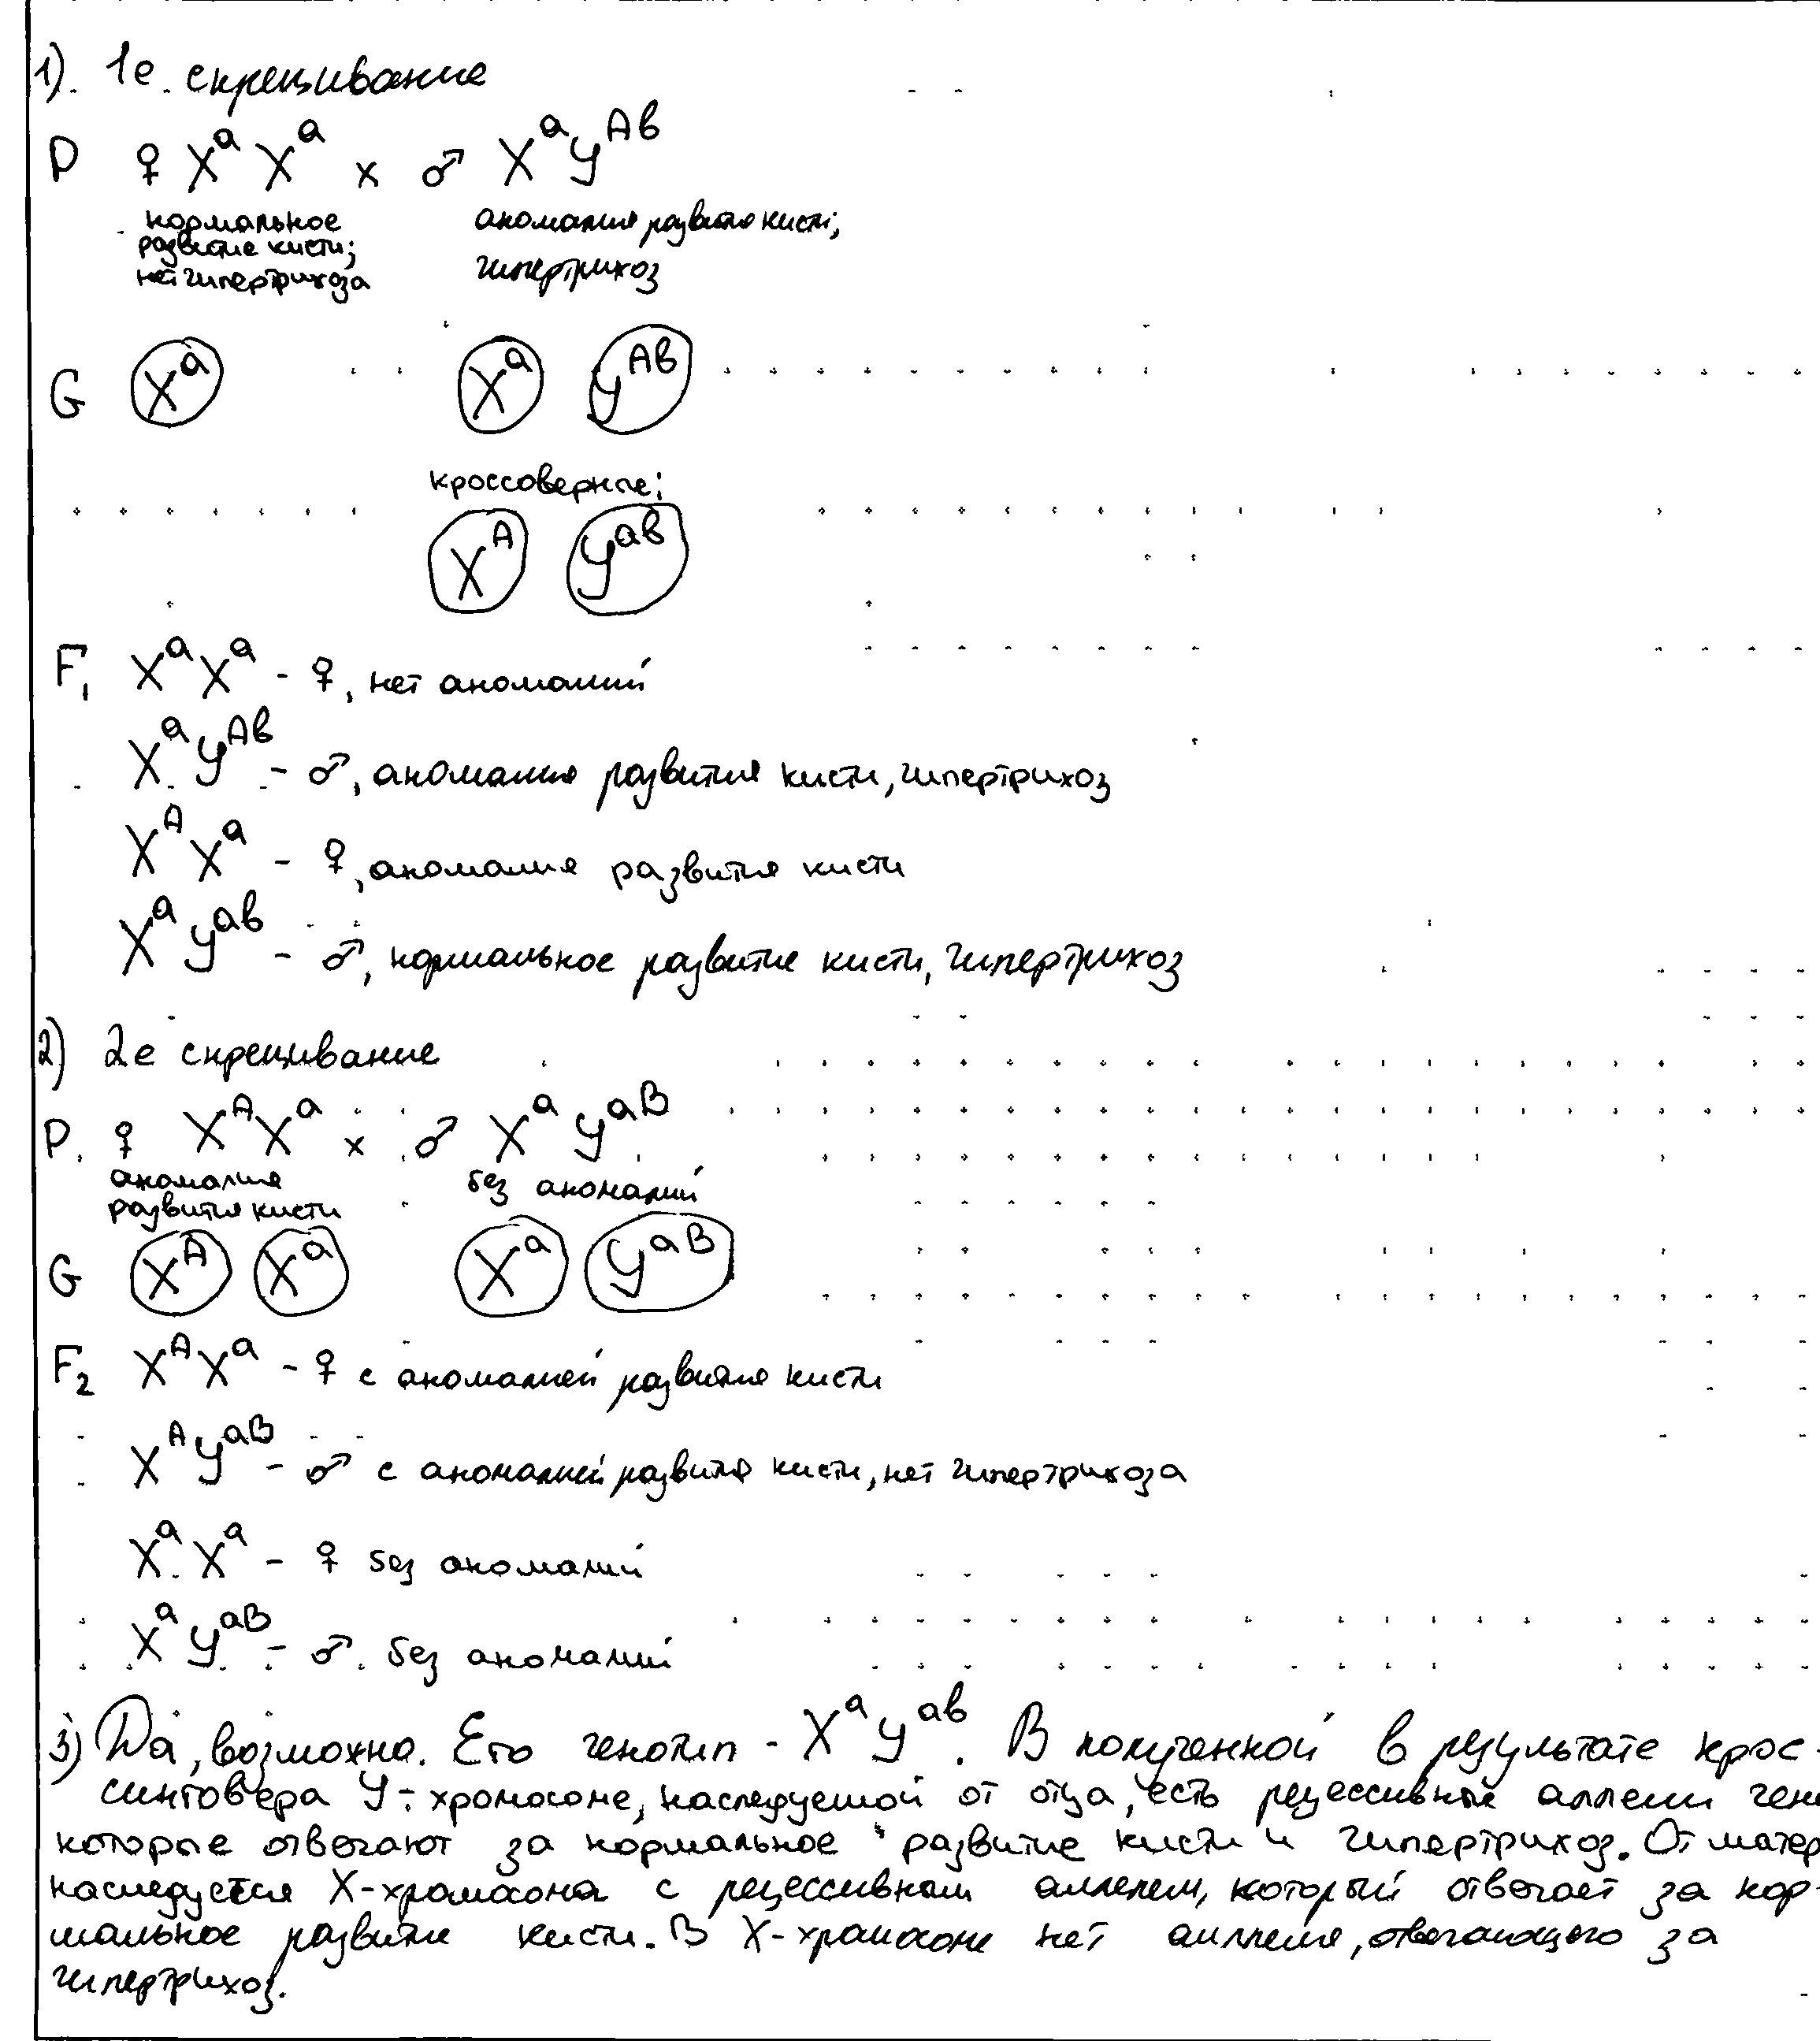 1). 1е скрещивание
P ♀ XᵃXᵃ x ♂ XᵃYᴬᵇ
нормальное развитие кисти; нет гипертрихоза
аномалия развития кисти; гипертрихоз
G Xᵃ Xᵃ Yᴬᵇ
кроссоверные:
Xᴬ Yᵃᵇ
F₁ XᵃXᵃ - ♀, нет аномалий
XᵃYᴬᵇ - ♂, аномалия развития кисти, гипертрихоз
XᴬXᵃ - ♀, аномалия развития кисти
XᵃYᵃᵇ - ♂, нормальное развитие кисти, гипертрихоз
2) 2е скрещивание
P. ♀ XᴬXᵃ x ♂ XᵃYᵃᴮ
аномалия развития кисти
без аномалий
G Xᴬ Xᵃ Xᵃ Yᵃᴮ
F₂ XᴬXᵃ - ♀ с аномалией развития кисти
XᴬYᵃᴮ - ♂ с аномалией развития кисти, нет гипертрихоза
XᵃXᵃ - ♀ без аномалий
XᵃYᵃᴮ - ♂ без аномалий
3) Да, возможно. Его генотип - XᵃYᵃᵇ. В полученной в результате крос-
синговера Y-хромосоме, наследуемой от отца, есть рецессивные аллели ген
которые отвечают за нормальное развитие кисти и гипертрихоз. От матер
наследуется X-хромосома с рецессивным аллелем, который отвечает за нор-
мальное развитие кисти. В X-хромосоме нет аллеля, отвечающего за
гипертрихоз.